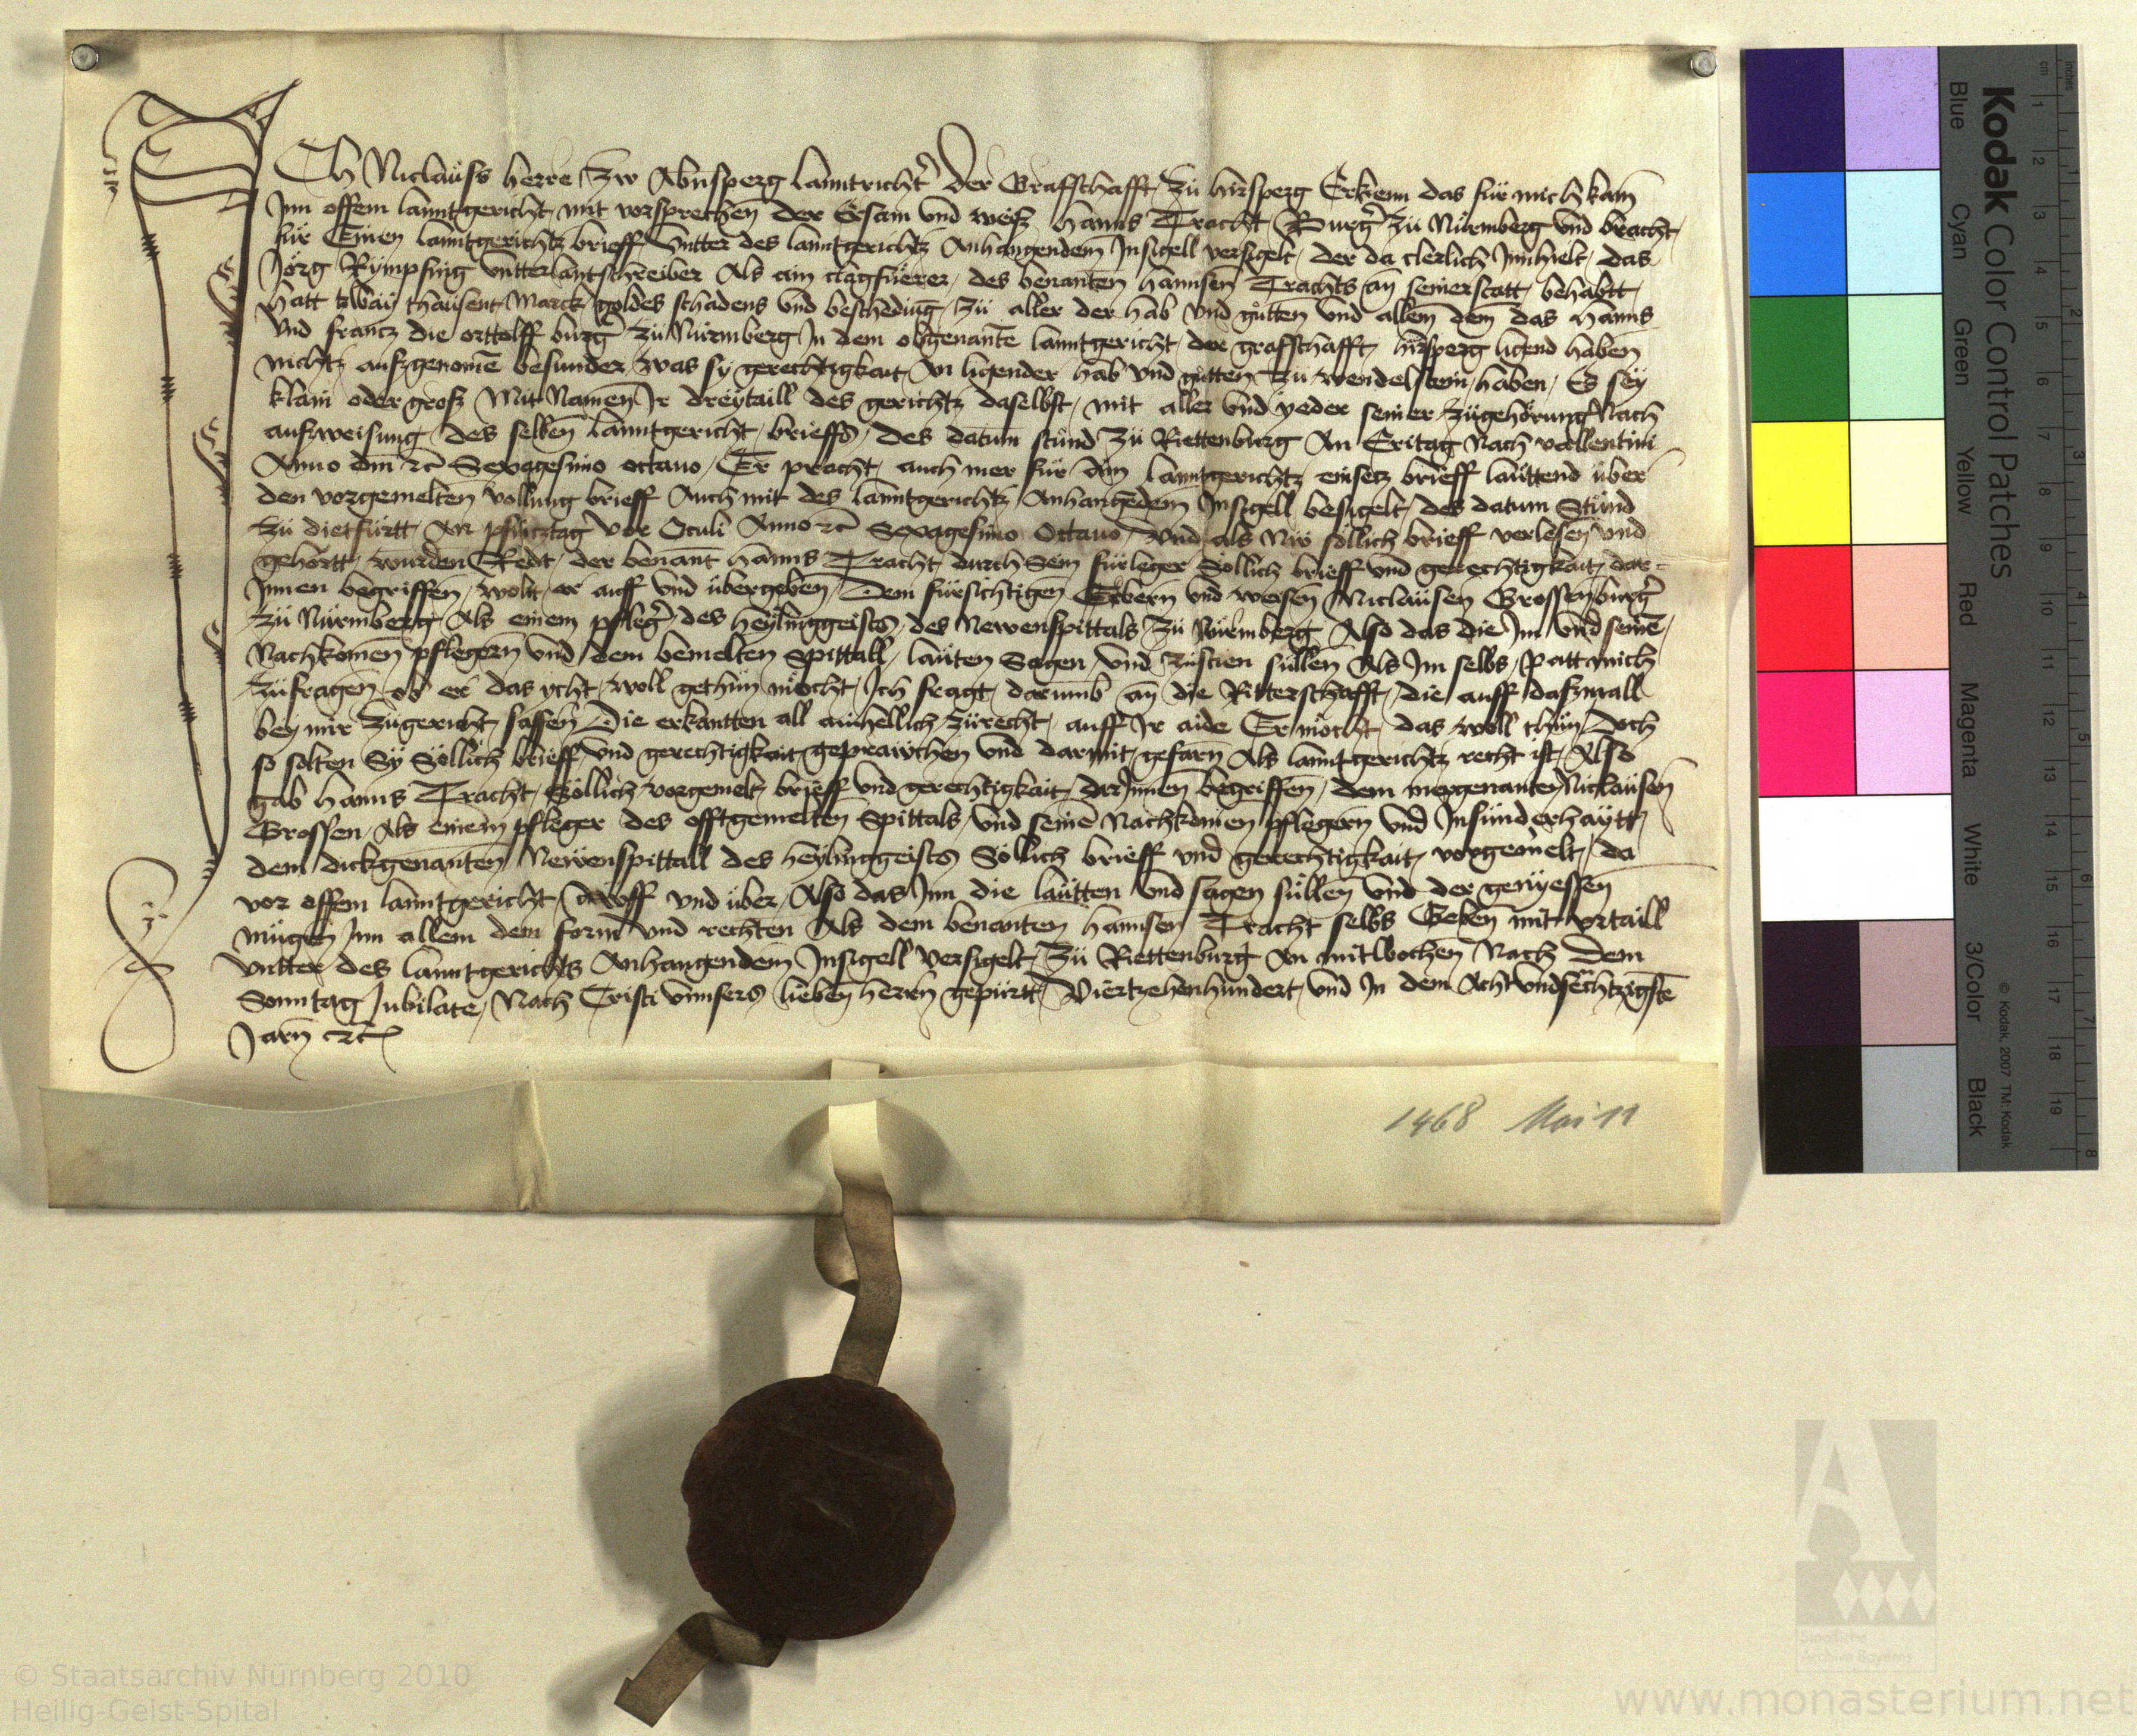 ICh Niclauss herre zw Abnsperg lanntricht der Graffschafft zü hirsperg Erkenn das für mich kam
Inn offem lanntgericht mit vorsprechen der Ersam vnd weiss hanns Tracht Burg zü Nürmberg vnd bracht
für Einen lanntgerichtz brieff vntter des lanntgerichtz Anhangendem Insigell versigelt der da clerlich Innhielt das
Jörg Rympfing vntterlantschreiber Als ain clagfuerer des benanten hannsen Trachts an seiner statt behabtt
hatt zway thausent Marck goldes schadens vnd beschedung zü aller der hab vnd gütten vnd allem dem das hanns
vnd francz die orttolff burg zü Nürmberg In dem obgenante lanntgericht der grafschafft hirsperg ligend haben
nichtz ausgenome besunder was sy gerechtigkait An ligender hab vnd gütten zu wendelstein haben Es sey
klain oder gross Mit Namen Ir dreytaill des gerichtz daselbst mit aller vnd yeder seiner zügehörung Nach
ausweisung des selben lanntgericht brieffs des datum stund zü Riettenburg An Eritag Nach vallentini
Anno dm rc Sexagesimo octauo Er pracht auch mer für ain lanntgerichtz einsetz brieff lauttend über
den vorgemelten vollung brieff Auch mit des lanntgerichtz Anhangedem Insigell besigelt des datum Stünd
zü dietfürtt An pfincztag vor Oculi Anno rc Sexagesimo Octauo Vnd als Nw söllich brieff verlesen vnd
gehörtt wurden Redt der benant hanns Tracht durch Sein fürleger Söllich brieff vnd gerechtigkait dar=
Innen begriffen wolt er auff vnd übergeben Dem fürsichtigen Erbern vnd weisen Niclausen Grossen burg
zü Nürmberg Als einem pfleg des heylinggeists des Newenspittals zü Nürmberg Also das die Im vnd seine
Nachkomen pflegern vnd dem bemelten Spittall lauten Sagen vnd züsteen süllen Als Im selbs Patt mich
züfragen ob er das ycht woll gethun möcht Ich fragt darumb an die Ritterschafft die auff daszmall
bey mir zügericht sassen Die erkantten all ainhellich zürecht auff Ir aide Er möcht das woll thün Doch
so solten Sy Söllich brieff vnd gerechtigkait geprawchen vnd darmit gefarn Als lanntgerichtz recht ist Also
gab hanns Tracht Söllich vorgemelt brieff vnd gerechtigkait darInnen begriffen dem megenanten Niclausen
Grossen Als einem pfleger des offtgemelten Spittals vnd seine Nachkomen pflegern vnd Insünderhaytt
dem dickgenanten Newenspittall des heylinggeists Söllich brieff vnd gerechtigkait vorgemelt da
vor offem lanntgericht Awff vnd über Also das Inn die lautten vnd sagen süllen vnd der genyessen
mügen Inn allem dem form vnd rechten Als dem benanten hannsen Tracht selbs Geben mit vrtaill
vntter des lanntgerichts Anhangendem Insigell versigelt Zü Riettenburg An mitwochen Nach Dem
Sonntag Jubilate Nach Cristi vnnsers lieben herrn gepürtt Viertzehenhundert vnd In dem Acht vndsechtzigste
Jarn rc
1468 Mai 11
Kodak Color Control Patches
Blue Cyan Green Yellow Red Magenta White 3/Color Black
© Kodak, 2007 TM: Kodak
cm 1 2 3 4 5 6 7 8 9 10 11 12 13 14 15 16 17 18 19
inches 1 2 3 4 5 6 7 8
Staatliche
Archive Bayerns
© Staatsarchiv Nürnberg 2010
Heilig-Geist-Spital
www.monasterium.net